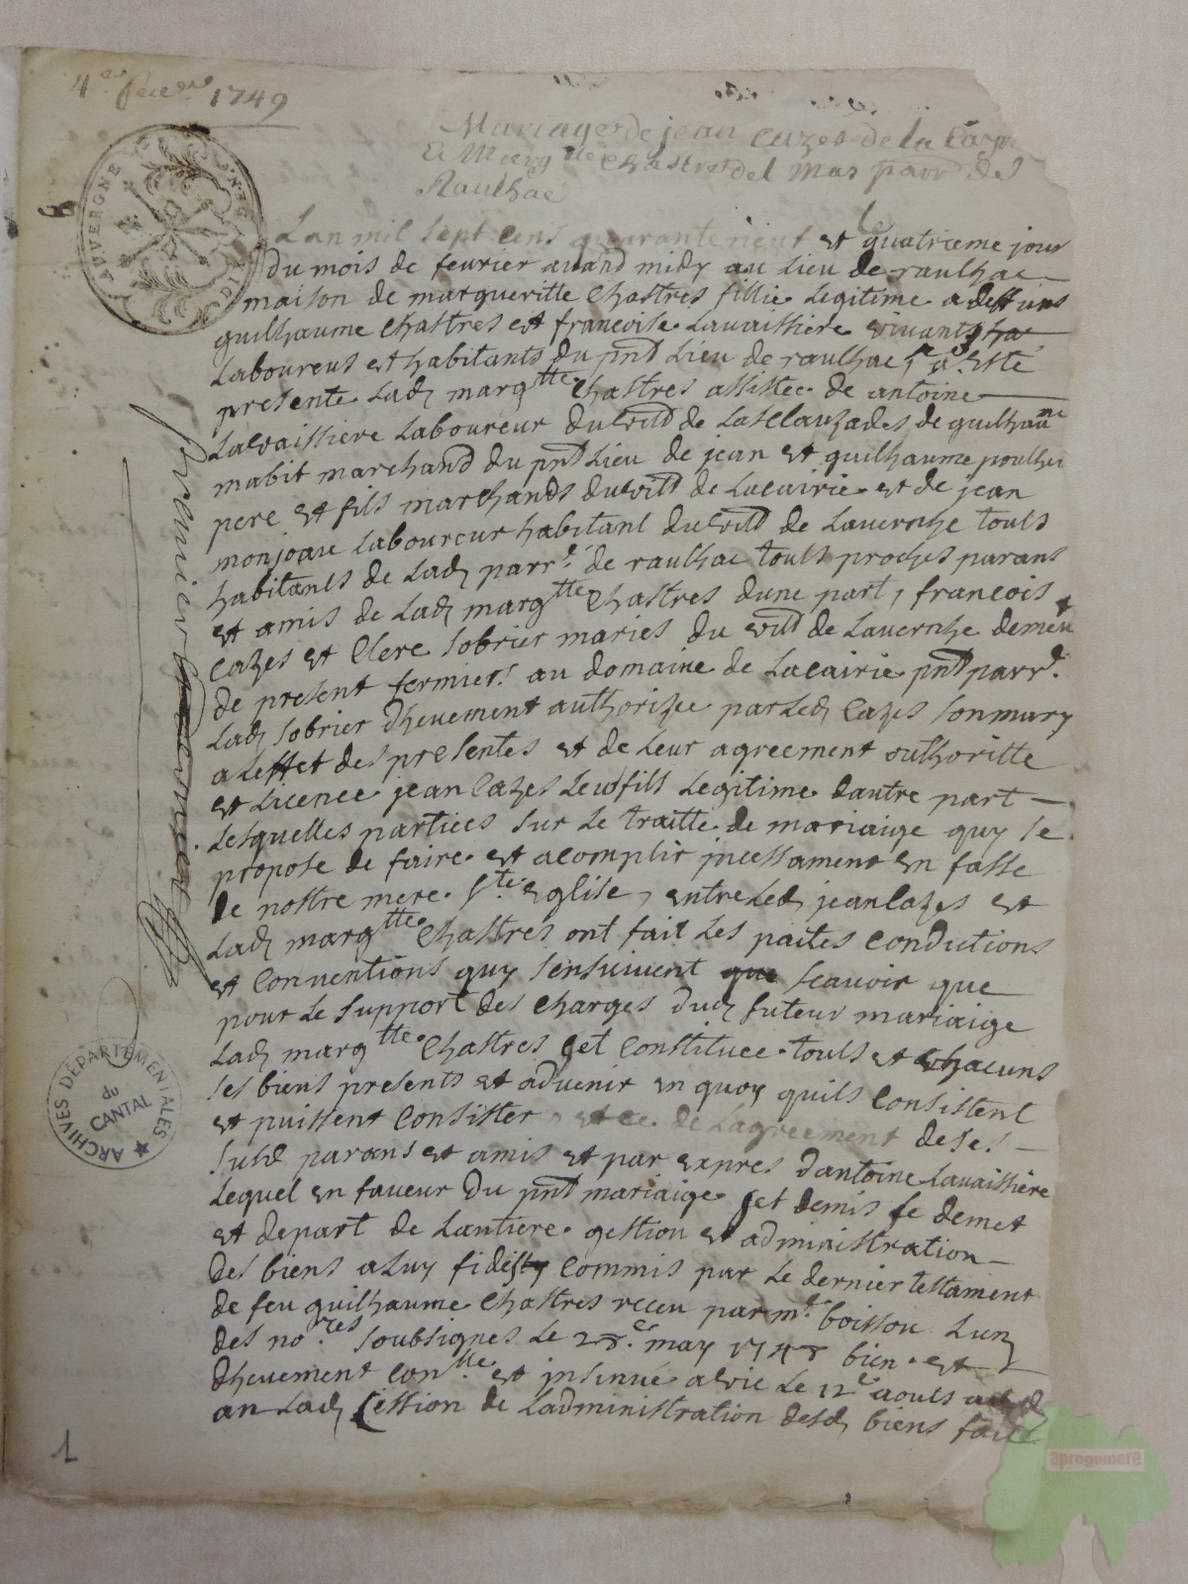 4e fevrier 1749
Mariage de jean Cazes de la Cayre
Et Margtte Chastres del Mas parr de
Raulhac
AUVERGNE
Lan mil sept cens quarante neuf et quatrieme jour
du mois de feurier auand midy au Lieu de raulhac
maison de margueritte Chastres fillie Legitime a deffuns
guilhaume Chastres et francoise Lauaissiere viuants
Laboureus et habitants du pnt Lieu de raulhac, a Esté
presente Lad margtte Chastres assistee de antoine
Lavaissiere Laboureur du villd de Lasclauzades de guilhaume
mabit marchand du pnt Lieu de jean et guilhaume poulhes
pere et fils marchands du villd de Lacairie et de jean
monjoau Laboureur habitant du villd de Lavernhe touts
habitants de Lad parr. de raulhac touts proches parans
et amis de Lad margtte Chastres dune part, francois
Cazes et Clere Sobrier maries du villd de Lauernhe demeu
de present fermiers au domaine de Lacairie pnt parr.
Lad Sobrier dheuement authorizee par Led Cazes son mary
a Leffet des presentes et de Leur agreement authoritte
et Licence jean Cazes Leur fils Legitime dautre part
Lesquelles partiees sur Le traitte de mariaige quy se
propose de faire et acomplir incessament en fasse
de nostre mere Ste Eglise, entre Led jean Cazes et
Lad margtte Chastres ont fait Les paites Condutions
et Conventions quy sensuivent que scauoir que
pour Le support des Charges dud futeur mariaige
Lad margtte Chastres set Constituee touts et Chacuns
ses biens presents et advenir en quoy quils Consistent
et puissent Consister, et ce de Lagreement de ses
susd parans et amis et par expres dantoine Lauaissiere
Lequel en faueur du pnt mariaige set demis se demet
et depart de Lantiere gestion et administration
des biens a Luy fidej Commis par Le dernier testament
de feu guilhaume Chastres receu par me boissou Lun
des nores soubsignes Le 28e may 1748 bien et
dheuement conlle et insinué a vic Le 12e aouts aud
an Lad Cession de Ladministration desd biens faite
premier
ARCHIVES DÉPARTEMENTALES
du
CANTAL
1
aprogemere